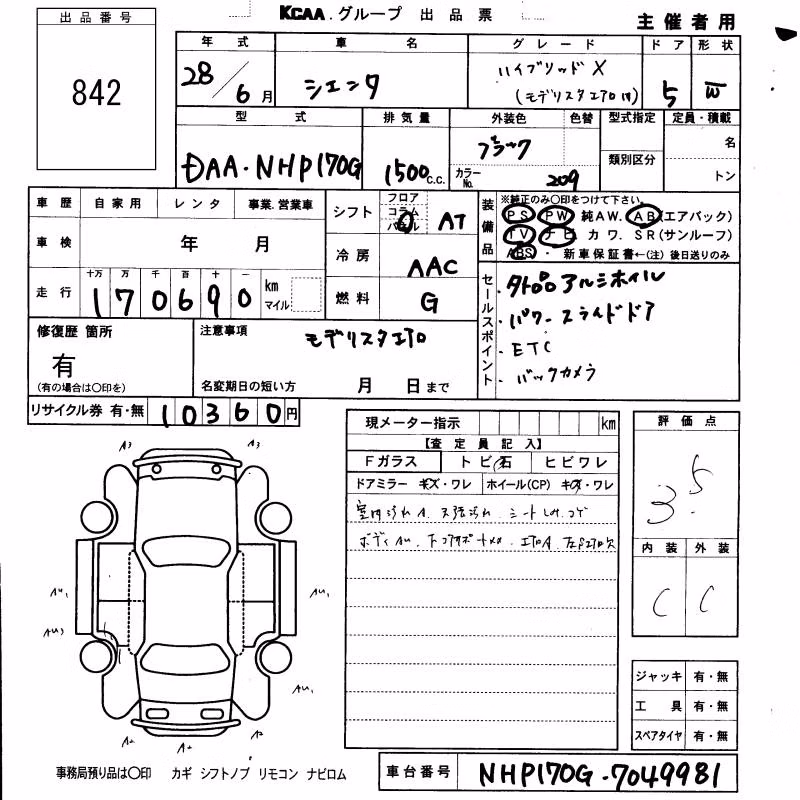 KCAA.グループ 出品票
主催者用
出品番号
842
年式
28/6月
車名
シエンタ
グレード
ハイブリッドX
(モデリスタエアロ付)
ドア
5
形状
W
型式
DAA-NHP170G
排気量
1500c.c.
外装色
ブラック
色替
カラーNo.
209
型式指定
類別区分
定員・積載
名
トン
車歴 自家用 レンタ 事業.営業車
車検 年 月
走行 十万 万 千 百 十 一
170690 km
マイル
シフト フロア コラム パネル AT
冷房 AAC
燃料 G
装備品
※純正のみ○印をつけて下さい。
PS PW 純AW. AB(エアバック)
TV ナビ カワ. SR(サンルーフ)
ABS ・ 新車保証書←(注) 後日送りのみ
セールスポイント
・外品アルミホイル
・パワースライドドア
・ETC
・バックカメラ
修復歴 箇所
有
(有の場合は○印を)
注意事項
モデリスタエアロ
名変期日の短い方 月 日まで
リサイクル券 有・無 10360円
現メーター指示 km
【査定員記入】
Fガラス トビ石 ヒビワレ
ドアミラー キズ・ワレ ホイール(CP) キズ・ワレ
室内汚れA.天張汚れ.シート
ボディAU.下コアサポートメメ.エアロA.
評価点
3.5
内装 外装
C C
A3 A3
AU1 AU1
AU3
AU1
A2 A2 A2
ジャッキ 有・無
工具 有・無
スペアタイヤ 有・無
事務局預り品は○印 カギ シフトノブ リモコン ナビロム
車台番号 NHP170G-7049981